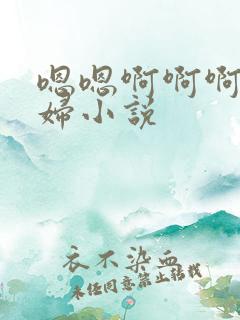 嗯嗯啊啊啊
婦小说
衣不染血
未经同意禁止转载